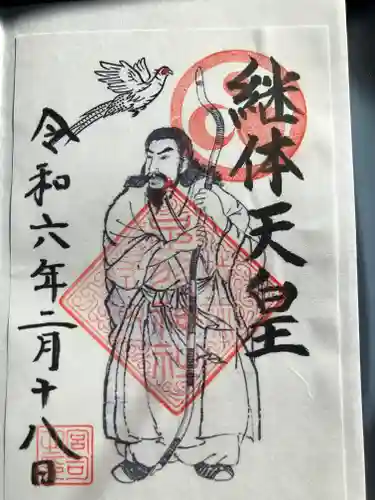 継体天皇
令和六年二月十八日